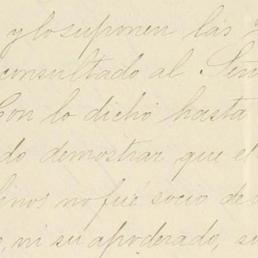 y lo suponen las
consultado al Señ
Con lo dicho hasta
do demostrar que el
linos no fué socio de
, ni su apoderado, su